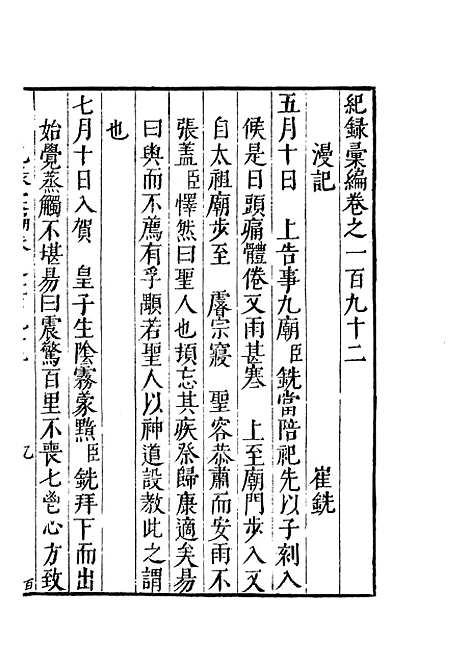 紀録彙編卷之一百九十二
漫記 崔銑
五月十日 上告事九廟臣銑當陪祀先以子刻入
候是日頭痛體倦又雨甚寒 上至廟門步入又
自太祖廟步至 睿宗寢 聖容恭肅而安雨不
張盖臣懌然曰聖人也頓忘其疾祭歸康適矣昜
曰與而不薦有孚顒若聖人以神道設教此之謂
也
七月十日入賀 皇子生陰霧蒙黯臣銑拜下而出
始覺蒸觸不堪昜曰震驚百里不喪七鬯心方致